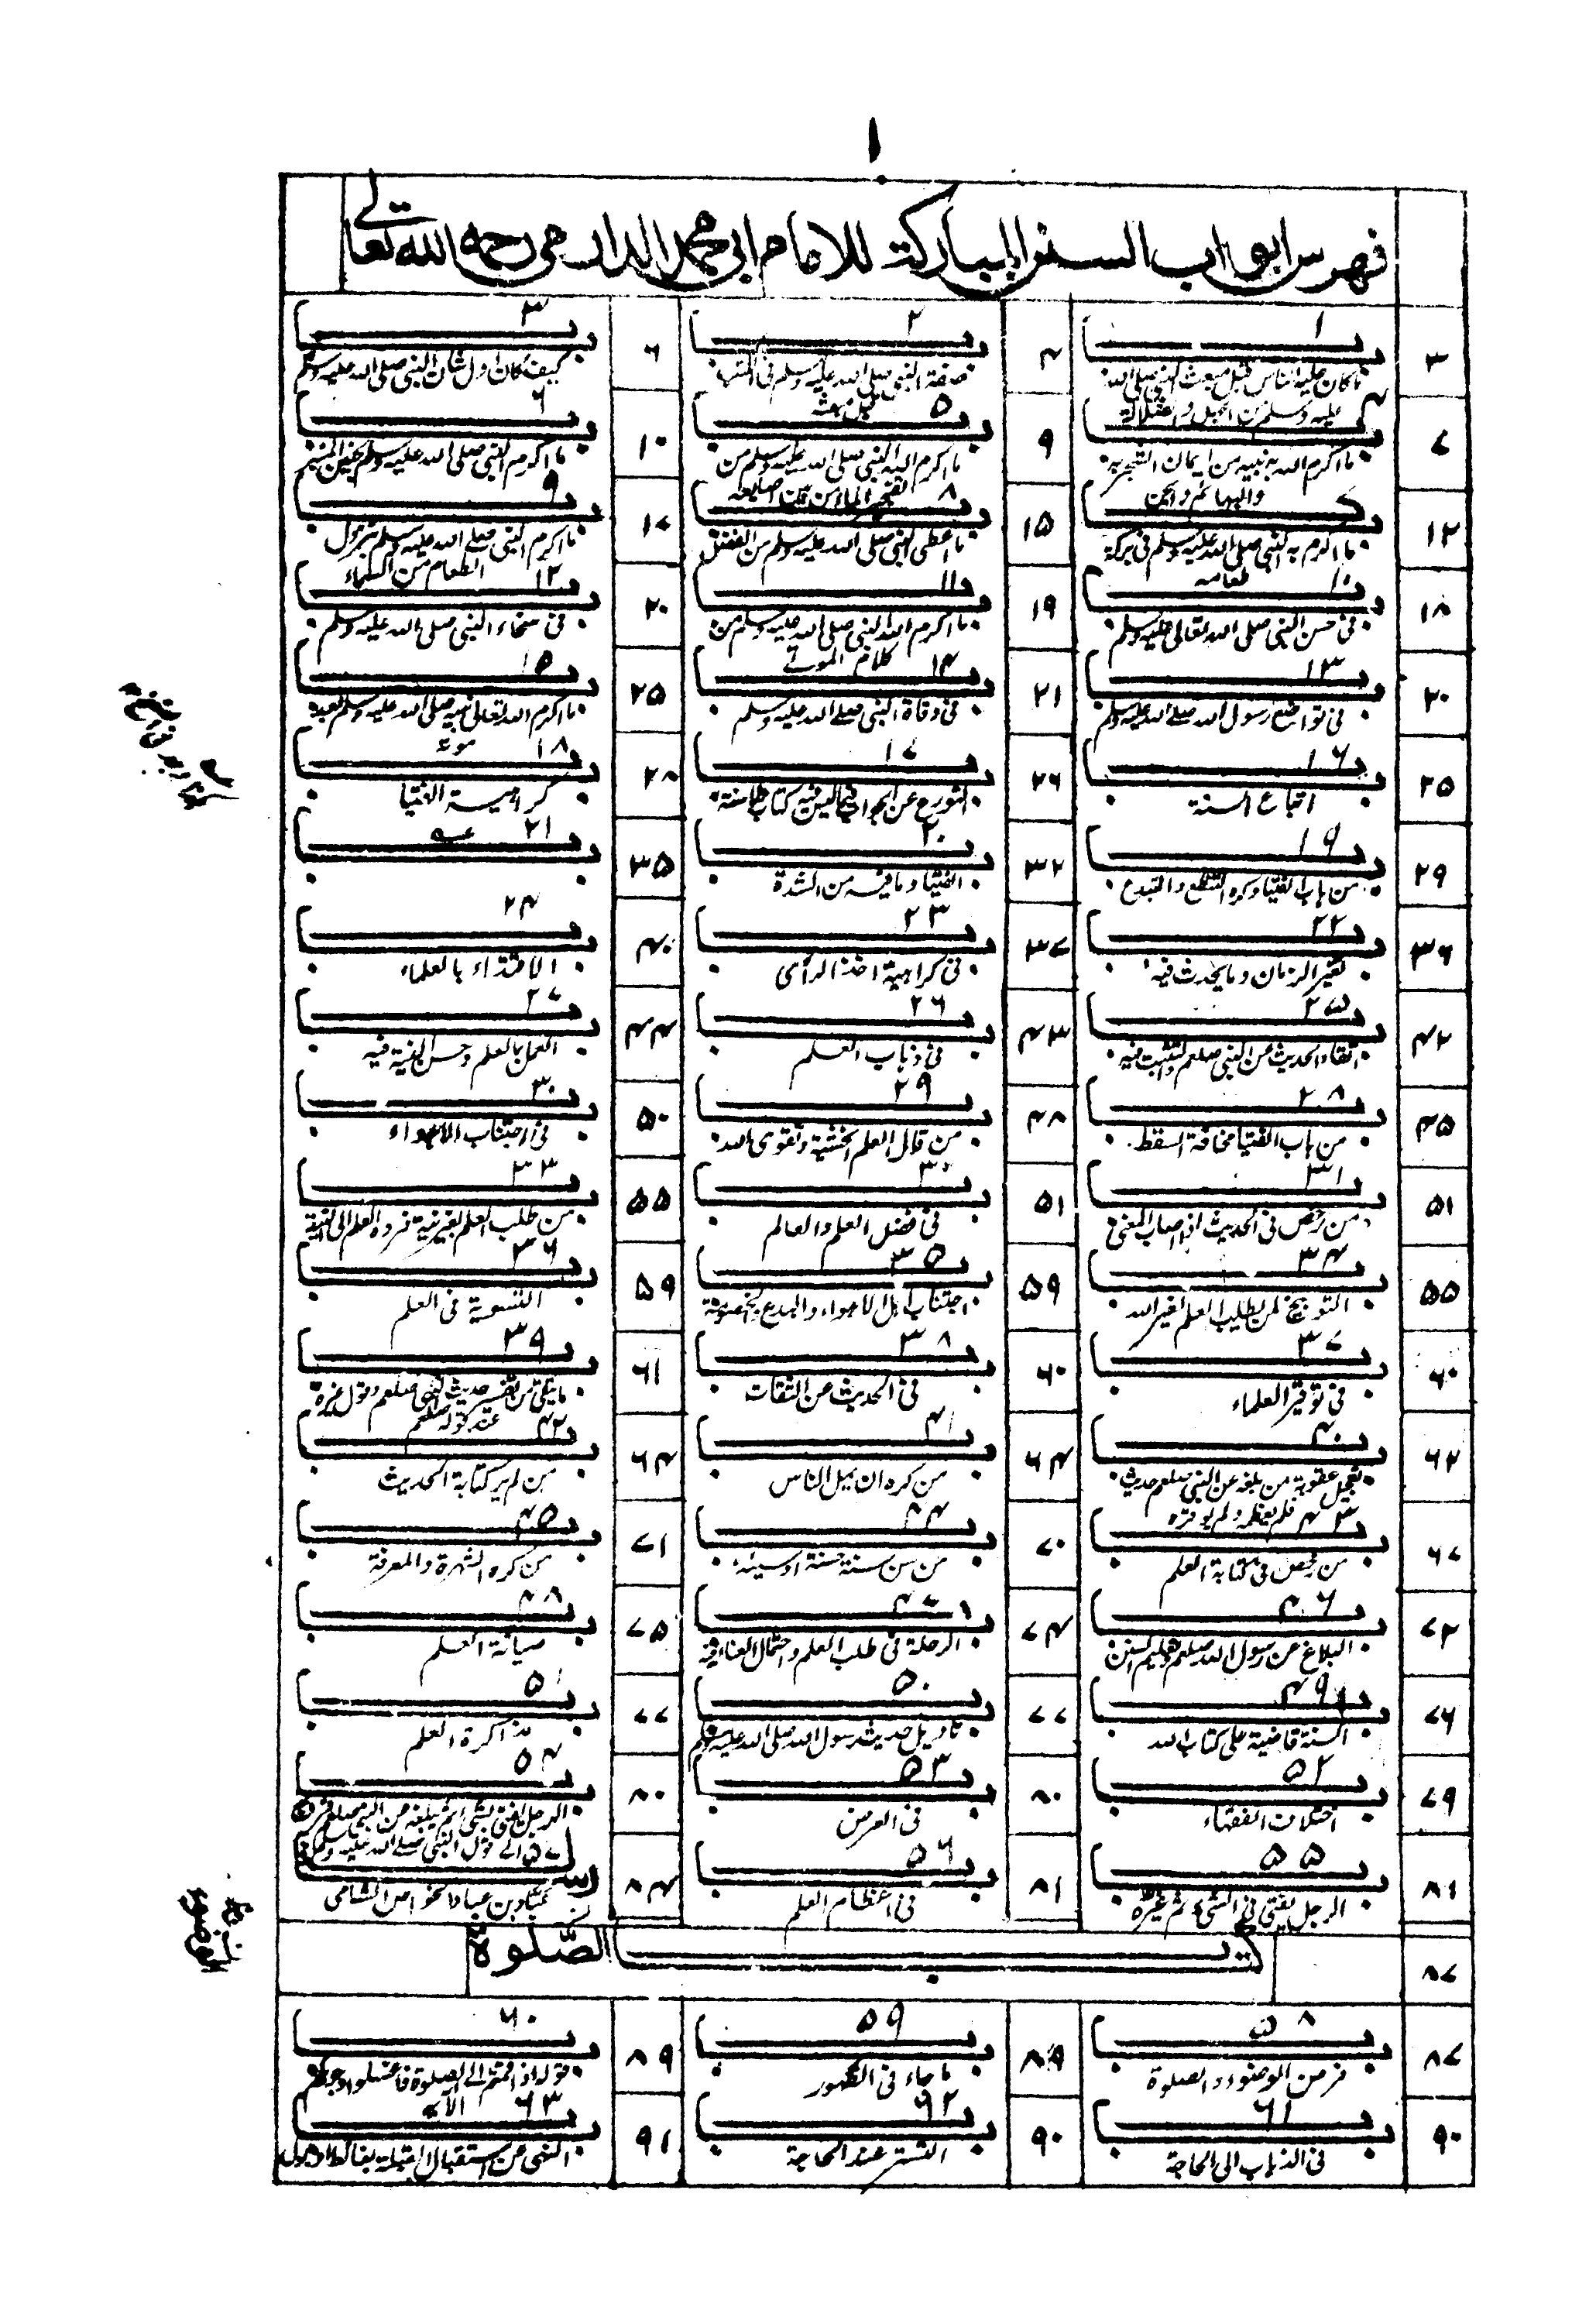 ١
فهرس ابواب السنن المباركة للامام ابى محمد الدارمى رحمه الله تعالى
٣ باب ١ ما كان عليه الناس قبل مبعث النبى صلى الله عليه وسلم من الجهل والضلالة
٤ باب ٢ صفة النبى صلى الله عليه وسلم فى الكتب قبل مبعثه
٦ باب ٣ كيف كان اول شان النبى صلى الله عليه وسلم
٧ باب ٤ ما اكرم الله به نبيه من ايمان الشجر به والبهائم والجن
٩ باب ٥ ما اكرم الله النبى صلى الله عليه وسلم من تفجير الماء من بين اصابعه
١٠ باب ٦ ما اكرم النبى صلى الله عليه وسلم بحنين المنبر
١٢ باب ٧ ما اكرم به النبى صلى الله عليه وسلم فى بركة طعامه
١٥ باب ٨ ما اعطى النبى صلى الله عليه وسلم من الفضل
١٧ باب ٩ ما اكرم النبى صلى الله عليه وسلم بنزول الطعام من السماء
١٨ باب ١٠ فى حسن النبى صلى الله تعالى عليه وسلم
١٩ باب ١١ ما اكرم الله النبى صلى الله عليه وسلم من كلام الموتى
٢٠ باب ١٢ فى سخاء النبى صلى الله عليه وسلم
٢٠ باب ١٣ فى تواضع رسول الله صلى الله عليه وسلم
٢١ باب ١٤ فى وفاة النبى صلى الله عليه وسلم
٢٥ باب ١٥ ما اكرم الله تعالى نبيه صلى الله عليه وسلم بعد موته
٢٥ باب ١٦ اتباع السنة
٢٦ باب ١٧ التورع عن الجواب فيما ليس فيه كتاب ولا سنة
٢٨ باب ١٨ كراهية الفتيا
٢٩ باب ١٩ من هاب الفتيا وكره التنطع والتبدع
٣٢ باب ٢٠ الفتيا وما فيه من الشدة
٣٥ باب ٢١
٣٦ باب ٢٢ تغير الزمان وما يحدث فيه
٣٧ باب ٢٣ فى كراهية اخذ الرأى
٤٠ باب ٢٤ الاقتداء بالعلماء
٤٢ باب ٢٥ اتقاء الحديث عن النبى صلعم والتثبت فيه
٤٣ باب ٢٦ فى ذهاب العلم
٤٤ باب ٢٧ العمل بالعلم وحسن النية فيه
٤٥ باب ٢٨ من هاب الفتيا مخافة السقط
٤٨ باب ٢٩ من قال العلم الخشية وتقوى الله
٥٠ باب ٣٠ فى اجتناب الاهواء
٥١ باب ٣١ من رخص فى الحديث اذا اصاب المعنى
٥١ باب فى فضل العلم والعالم
٥٥ باب ٣٣ من طلب العلم بغير نية فرده العلم الى النية
٥٥ باب ٣٤ التوبيخ لمن يطلب العلم لغير الله
٥٩ باب ٣٥ اجتناب اهل الاهواء والبدع والخصومة
٥٩ باب ٣٦ التسوية فى العلم
٦٠ باب ٣٧ فى توقير العلماء
٦٠ باب ٣٨ فى الحديث عن الثقات
٦١ باب ٣٩ ما يتقى من تفسير حديث النبى صلعم وقول غيره عند قوله صلعم
٦٢ باب ٤٠ تعجيل عقوبة من بلغه عن النبى صلعم حديث فلم يعظمه ولم يوقره
٦٤ باب ٤١ من كره ان يمل الناس
٦٤ باب ٤٢ من لم ير كتابة الحديث
٦٧ باب ٤٣ من رخص فى كتابة العلم
٧٠ باب ٤٤ من سن سنة حسنة او سيئة
٧١ باب ٤٥ من كره الشهرة والمعرفة
٧٢ باب ٤٦ البلاغ عن رسول الله صلعم وتعليم السنن
٧٤ باب ٤٧ الرحلة فى طلب العلم واحتمال العناء فيه
٧٥ باب ٤٨ صيانة العلم
٧٦ باب ٤٩ السنة قاضية على كتاب الله
٧٧ باب ٥٠ تاويل حديث رسول الله صلى الله عليه وسلم
٧٧ باب ٥١ مذاكرة العلم
٧٩ باب ٥٢ اختلاف الفقهاء
٨٠ باب ٥٣ فى العرض
٨٠ باب ٥٤ الرجل يفتى بشئ ثم يبلغه عن النبى صلعم فرجع الى قول النبى صلى الله عليه وسلم
٨١ باب ٥٥ الرجل يفتى فى الشئ ثم غيره
٨١ باب ٥٦ فى اعظام العلم
٨٤ ٥٧ رسالة عباد بن عباد الخواص الشامى
٨٧ كتاب الصلوة
٨٧ باب ٥٨ فرض الوضوء والصلوة
٨٩ باب ٥٩ ما جاء فى الطهور
٨٩ باب ٦٠ قوله اذا قمتم الى الصلوة فاغسلوا وجوهكم الآية
٩٠ باب ٦١ فى الذهاب الى الحاجة
٩٠ باب ٦٢ التستر عند الحاجة
٩١ باب ٦٣ النهى عن استقبال القبلة بغائط او بول